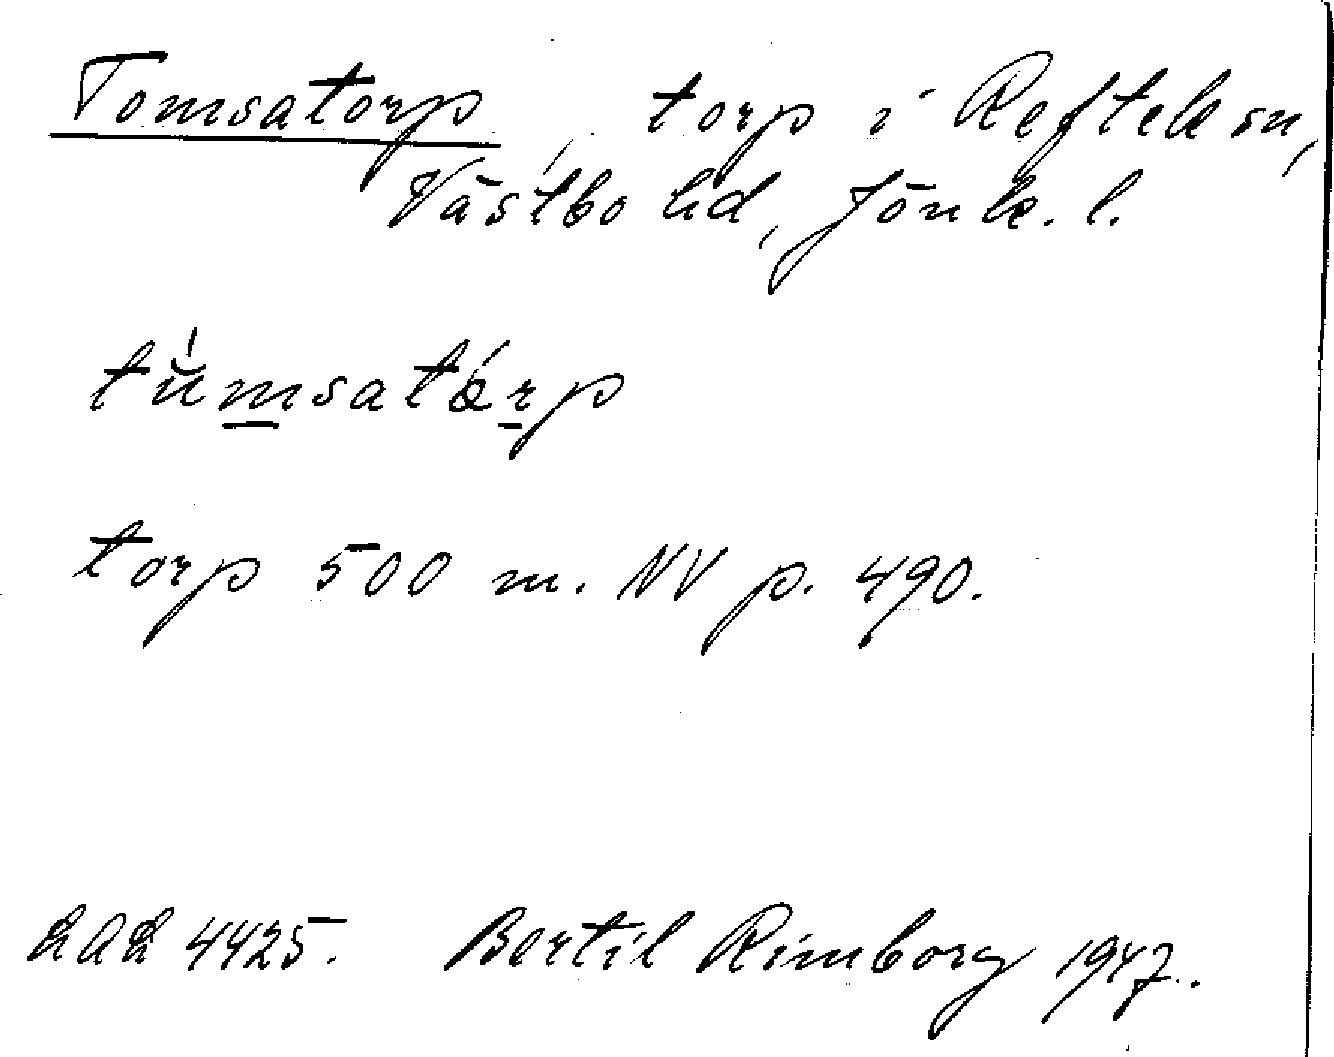 Tomsatorp, torp i Reftele sn,
Västbo hd, Jönk. l.
tŭ́msatǻrp
torp 500 m. NV p. 490.
LAL 4425. Bertil Rimborg 1947.